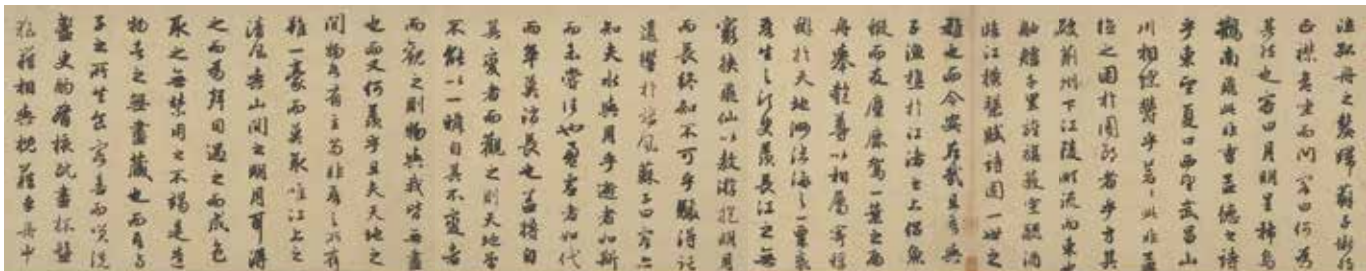 泣孤舟之嫠婦蘇子愀然
正襟危坐而問客曰何為
其然也客曰月明星稀烏
鵲南飛此非曹孟德之詩
乎東望夏口西望武昌山
川相繆鬱乎蒼々此非孟
德之困於周郎者乎方其
破荊州下江陵順流而東也
舳艫千里旌旗蔽空釃酒
臨江橫槊賦詩固一世之
雄也而今安在哉且吾與
子漁樵於江渚之上侶魚
鰕而友麋鹿駕一葉之扁
舟舉匏尊以相屬寄蜉
蝣於天地渺滄海之一粟哀
吾生之須臾羨長江之無
窮挾飛仙以遨游抱明月
而長終知不可乎驟得託
遺響於悲風蘇子曰客亦
知夫水與月乎逝者如斯
而未嘗往也盈虛者如代
而卒莫消長也蓋將自
其變者而觀之則天地曾
不能以一瞬自其不變者
而觀之則物與我皆無盡
也而又何羨乎且夫天地之
間物各有主苟非吾之所有
雖一毫而莫取唯江上之
清風與山間之明月耳得
之而為聲目遇之而成色
取之無禁用之不竭是造
物者之無盡藏也而吾與
子之所共食客喜而笑洗
盞更酌肴核既盡杯盤
狼藉相與枕藉乎舟中